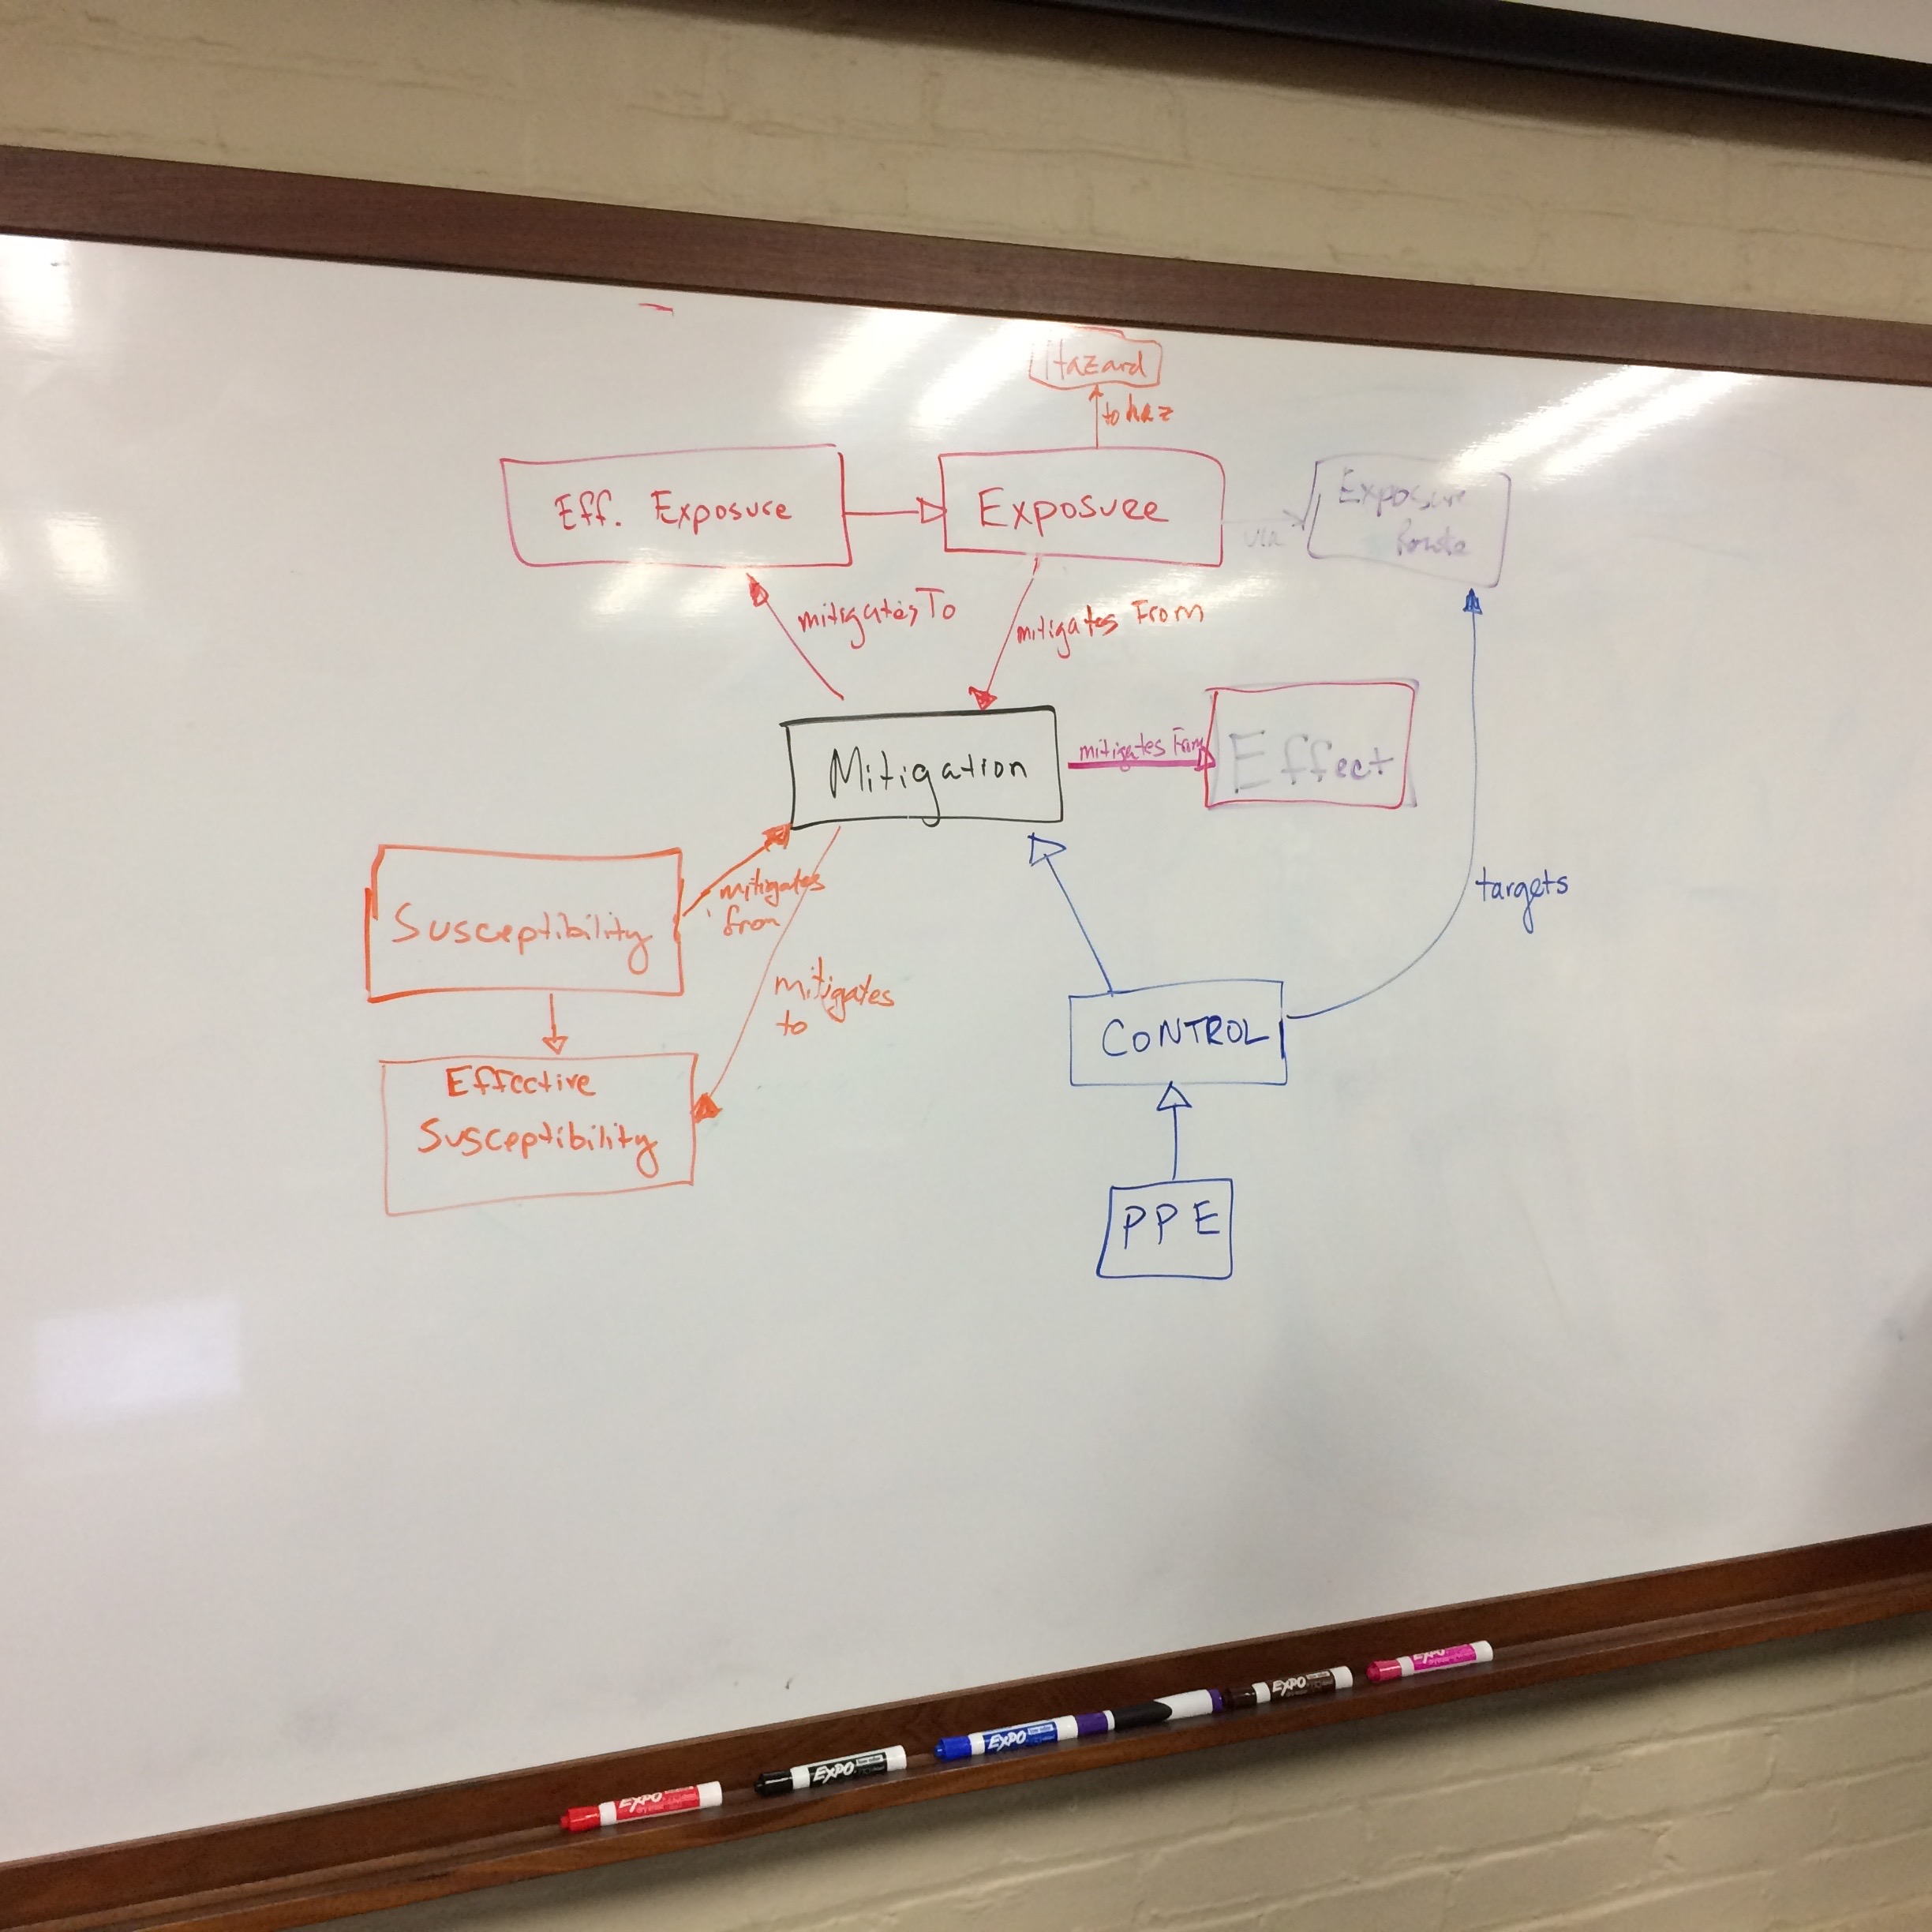 Hazard
to haz
Eff. Exposure
Exposure
via
Exposure
Route
mitigates To
mitigates From
Mitigation
mitigates From
Effect
Susceptibility
mitigates
from
mitigates
to
targets
Effective
Susceptibility
CONTROL
PPE
EXPO
EXPO
EXPO
EXPO
EXPO